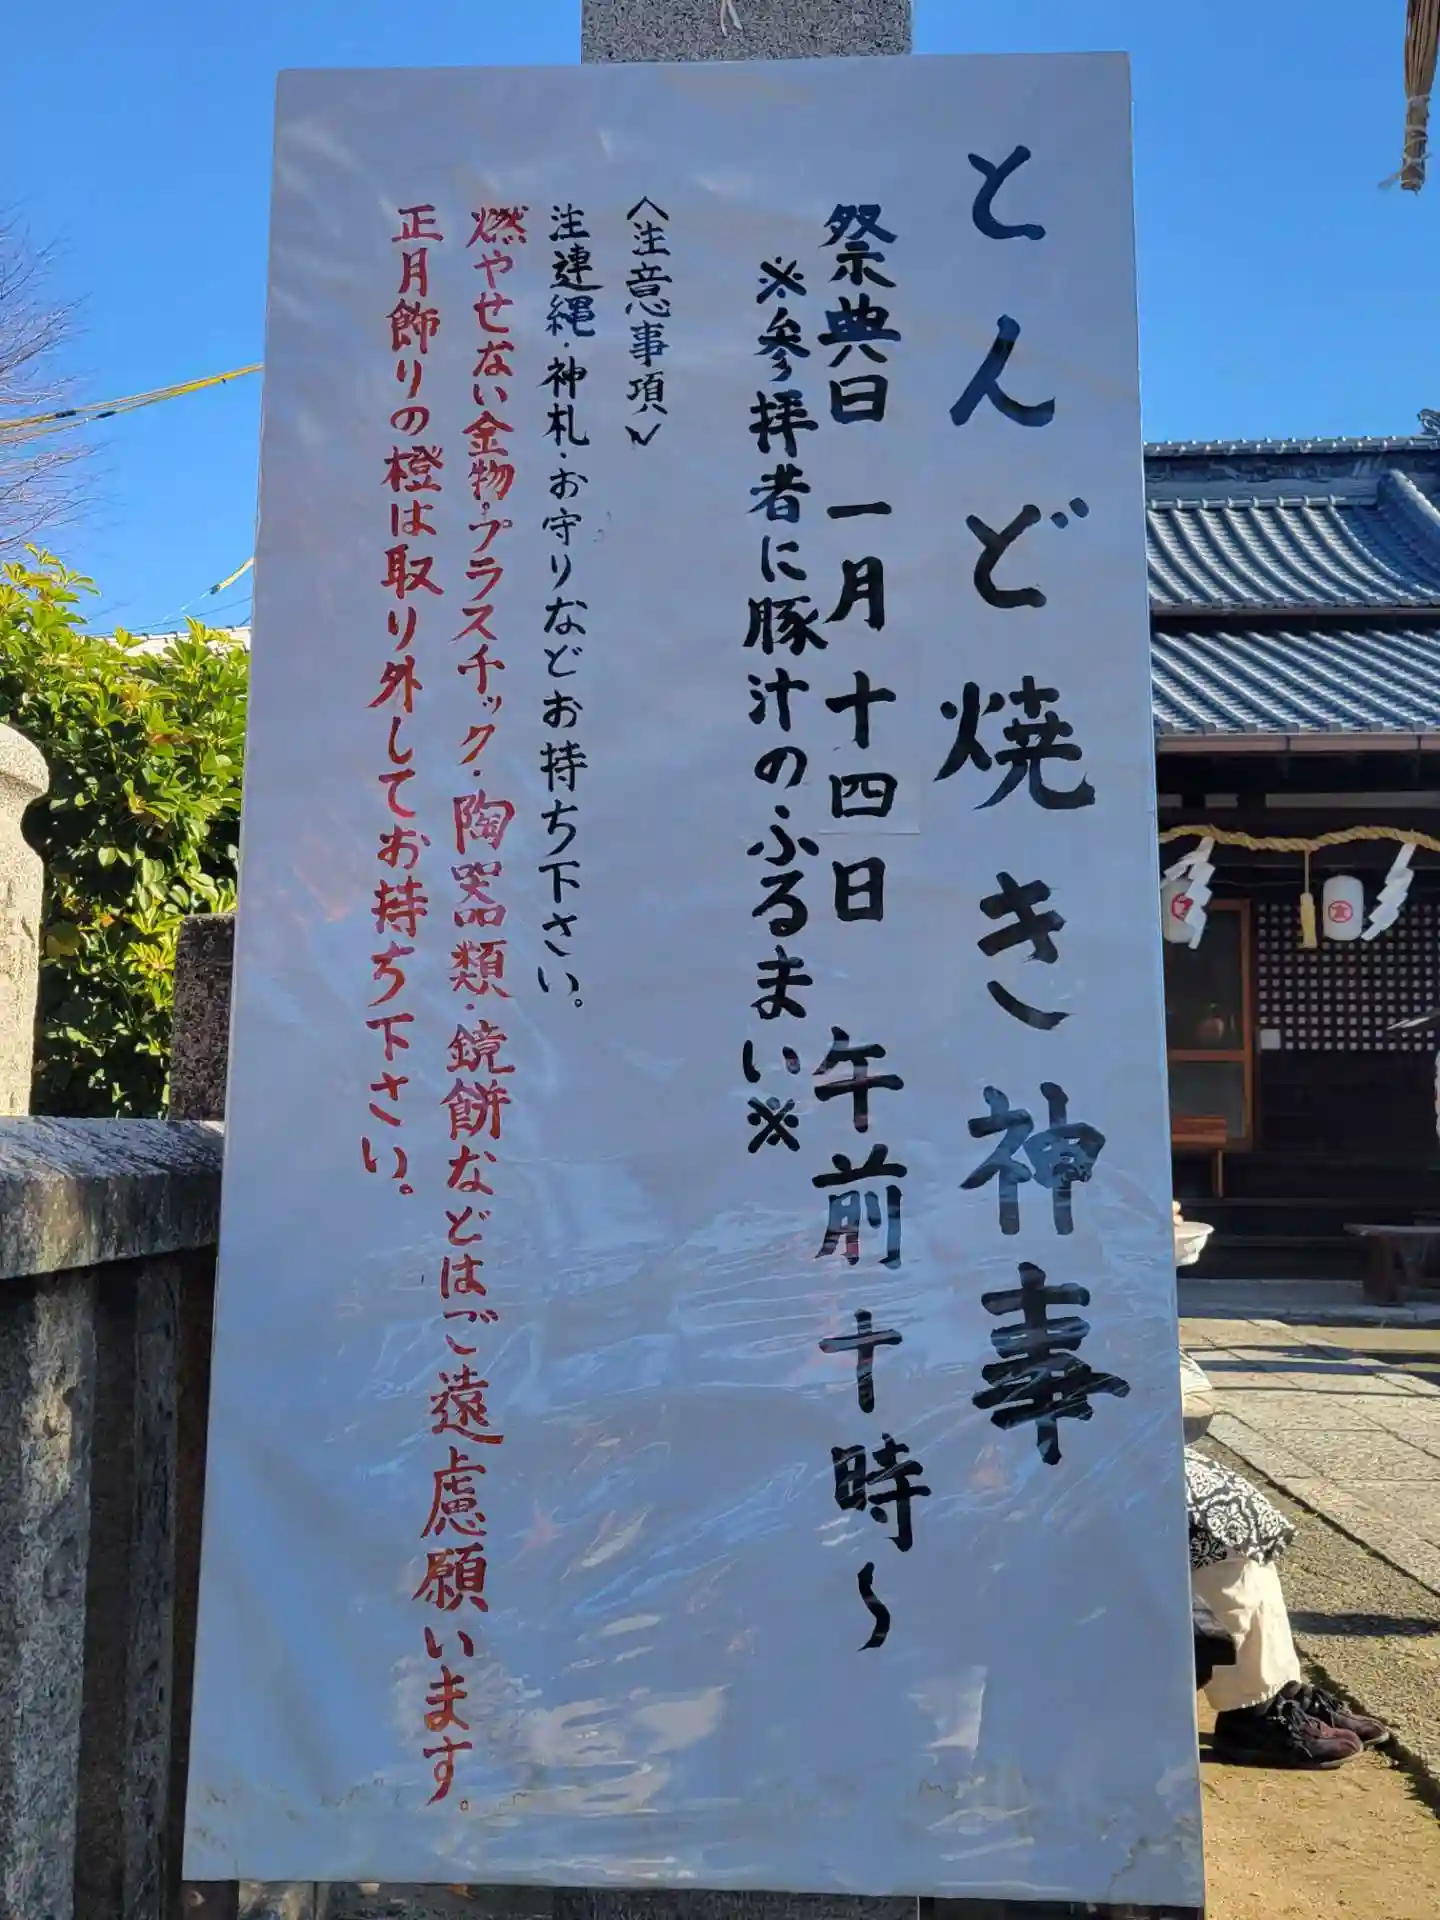 とんど焼き神事
祭典日 一月十四日 午前十時〜
※参拝者に豚汁のふるまい※
〈注意事項〉
注連縄・神札・お守りなどお持ち下さい。
燃やせない金物・プラスチック・陶器類・鏡餅などはご遠慮願います。
正月飾りの橙は取り外してお持ち下さい。